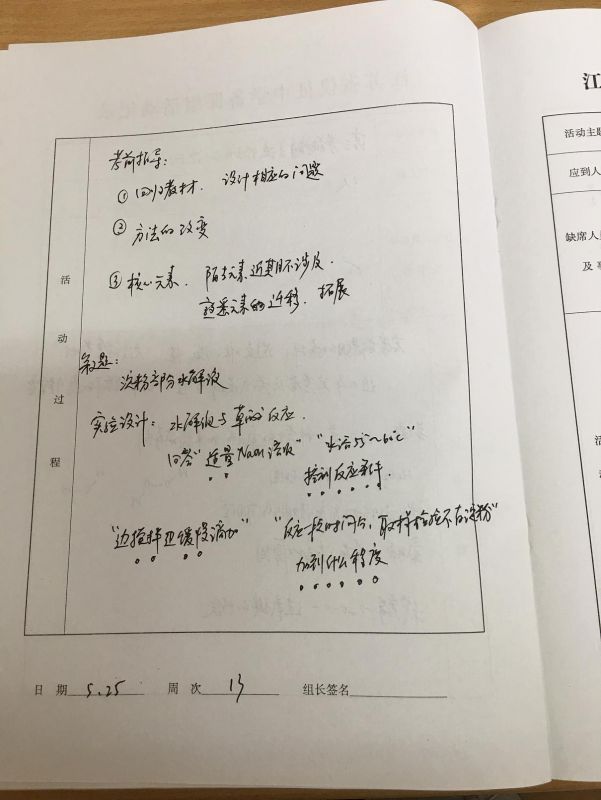 考前指导:
① 回归教材. 设计相应的问题
② 方法的改变
③ 核心元素. 陌生元素近期不涉及.
熟悉元素的迁移. 拓展
活动过程
淀粉部分水解液
实验设计: 水解液与草酸反应.
回答"适量NaOH溶液" "水浴55~60℃"
控制反应条件.
"边搅拌边缓慢滴加" "反应一段时间后, 取样检验不含淀粉"
加到什么程度
日 期 5.25 周 次 13 组长签名
江
活动主题
应到人
缺席人
及事
活